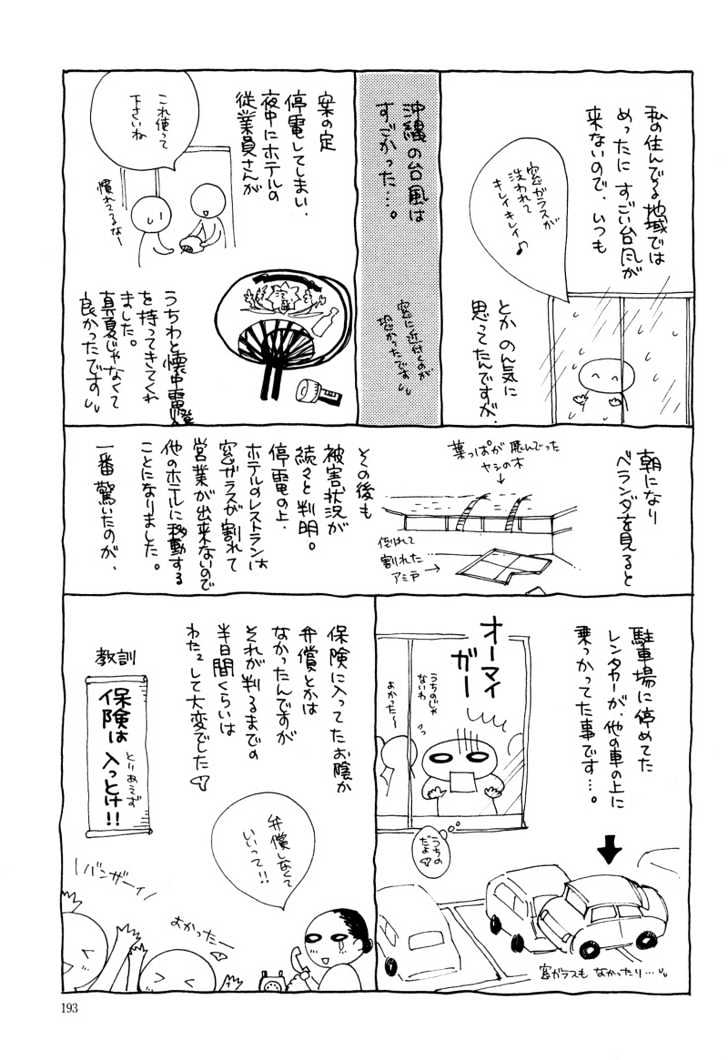 私の住んでる地域では
めったに すごい台風が
来ないので、いつも
窓ガラスが
洗われて
キレイキレイ♪
とか のん気に
思ってたんですが、
沖縄の台風は
すごかった…。
窓に近付くのが
恐かったです
案の定
停電してしまい、
夜中にホテルの
従業員さんが
これ使って
下さいね
慣れてるなー
うちわと懐中電燈
を持ってきてくれ
ました。
真夏じゃなくて
良かったです
朝になり
ベランダを見ると
葉っぱが飛んでった
ヤシの木
倒れて
割れた…
アミ戸
その後も
被害状況が
続々と判明。
停電の上、
ホテルのレストランは
窓ガラスが割れて
営業が出来ないので
他のホテルに移動する
ことになりました。
一番驚いたのが、
駐車場に停めてた
レンタカーが、他の車の上に
乗っかってた事です…。
オーマイ
ガー
うちのじゃ
ないわ
よかった〜
うちの
だよ
窓ガラスも なかったり…
保険に入ってたお陰か
弁償とかは
なかったんですが
それが判るまでの
半日間くらいは
わたわたして大変でした
教訓
保険は
とりあえず
入っとけ!!
弁償しなくて
いいって!!
バンザーイ
よかったー
193